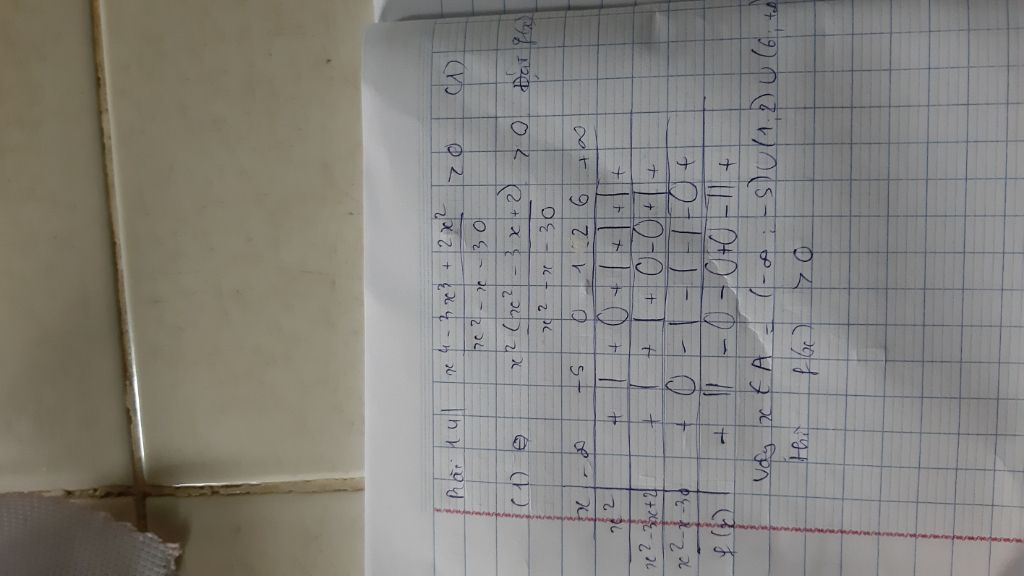 Bài 14| x⁴ - 3x³ + 2x² / x² - x - 30 > 0 (1)
(1) ⇔ x² (x² - 3x + 2) / x² - x - 30 > 0 Đặt f(x)
x -∞ -5 0 1 2 6 +∞
x² + | + 0 + | + | + | +
x² - 3x + 2 + | + | + 0 - 0 + | +
x² - x - 30 + 0 - | - | - | - 0 +
f(x) + || - 0 - 0 + 0 - || +
Vậy x ∈ A = (-∞ ; -5) ∪ (1, 2) ∪ (6, +∞
thì f(x) > 0